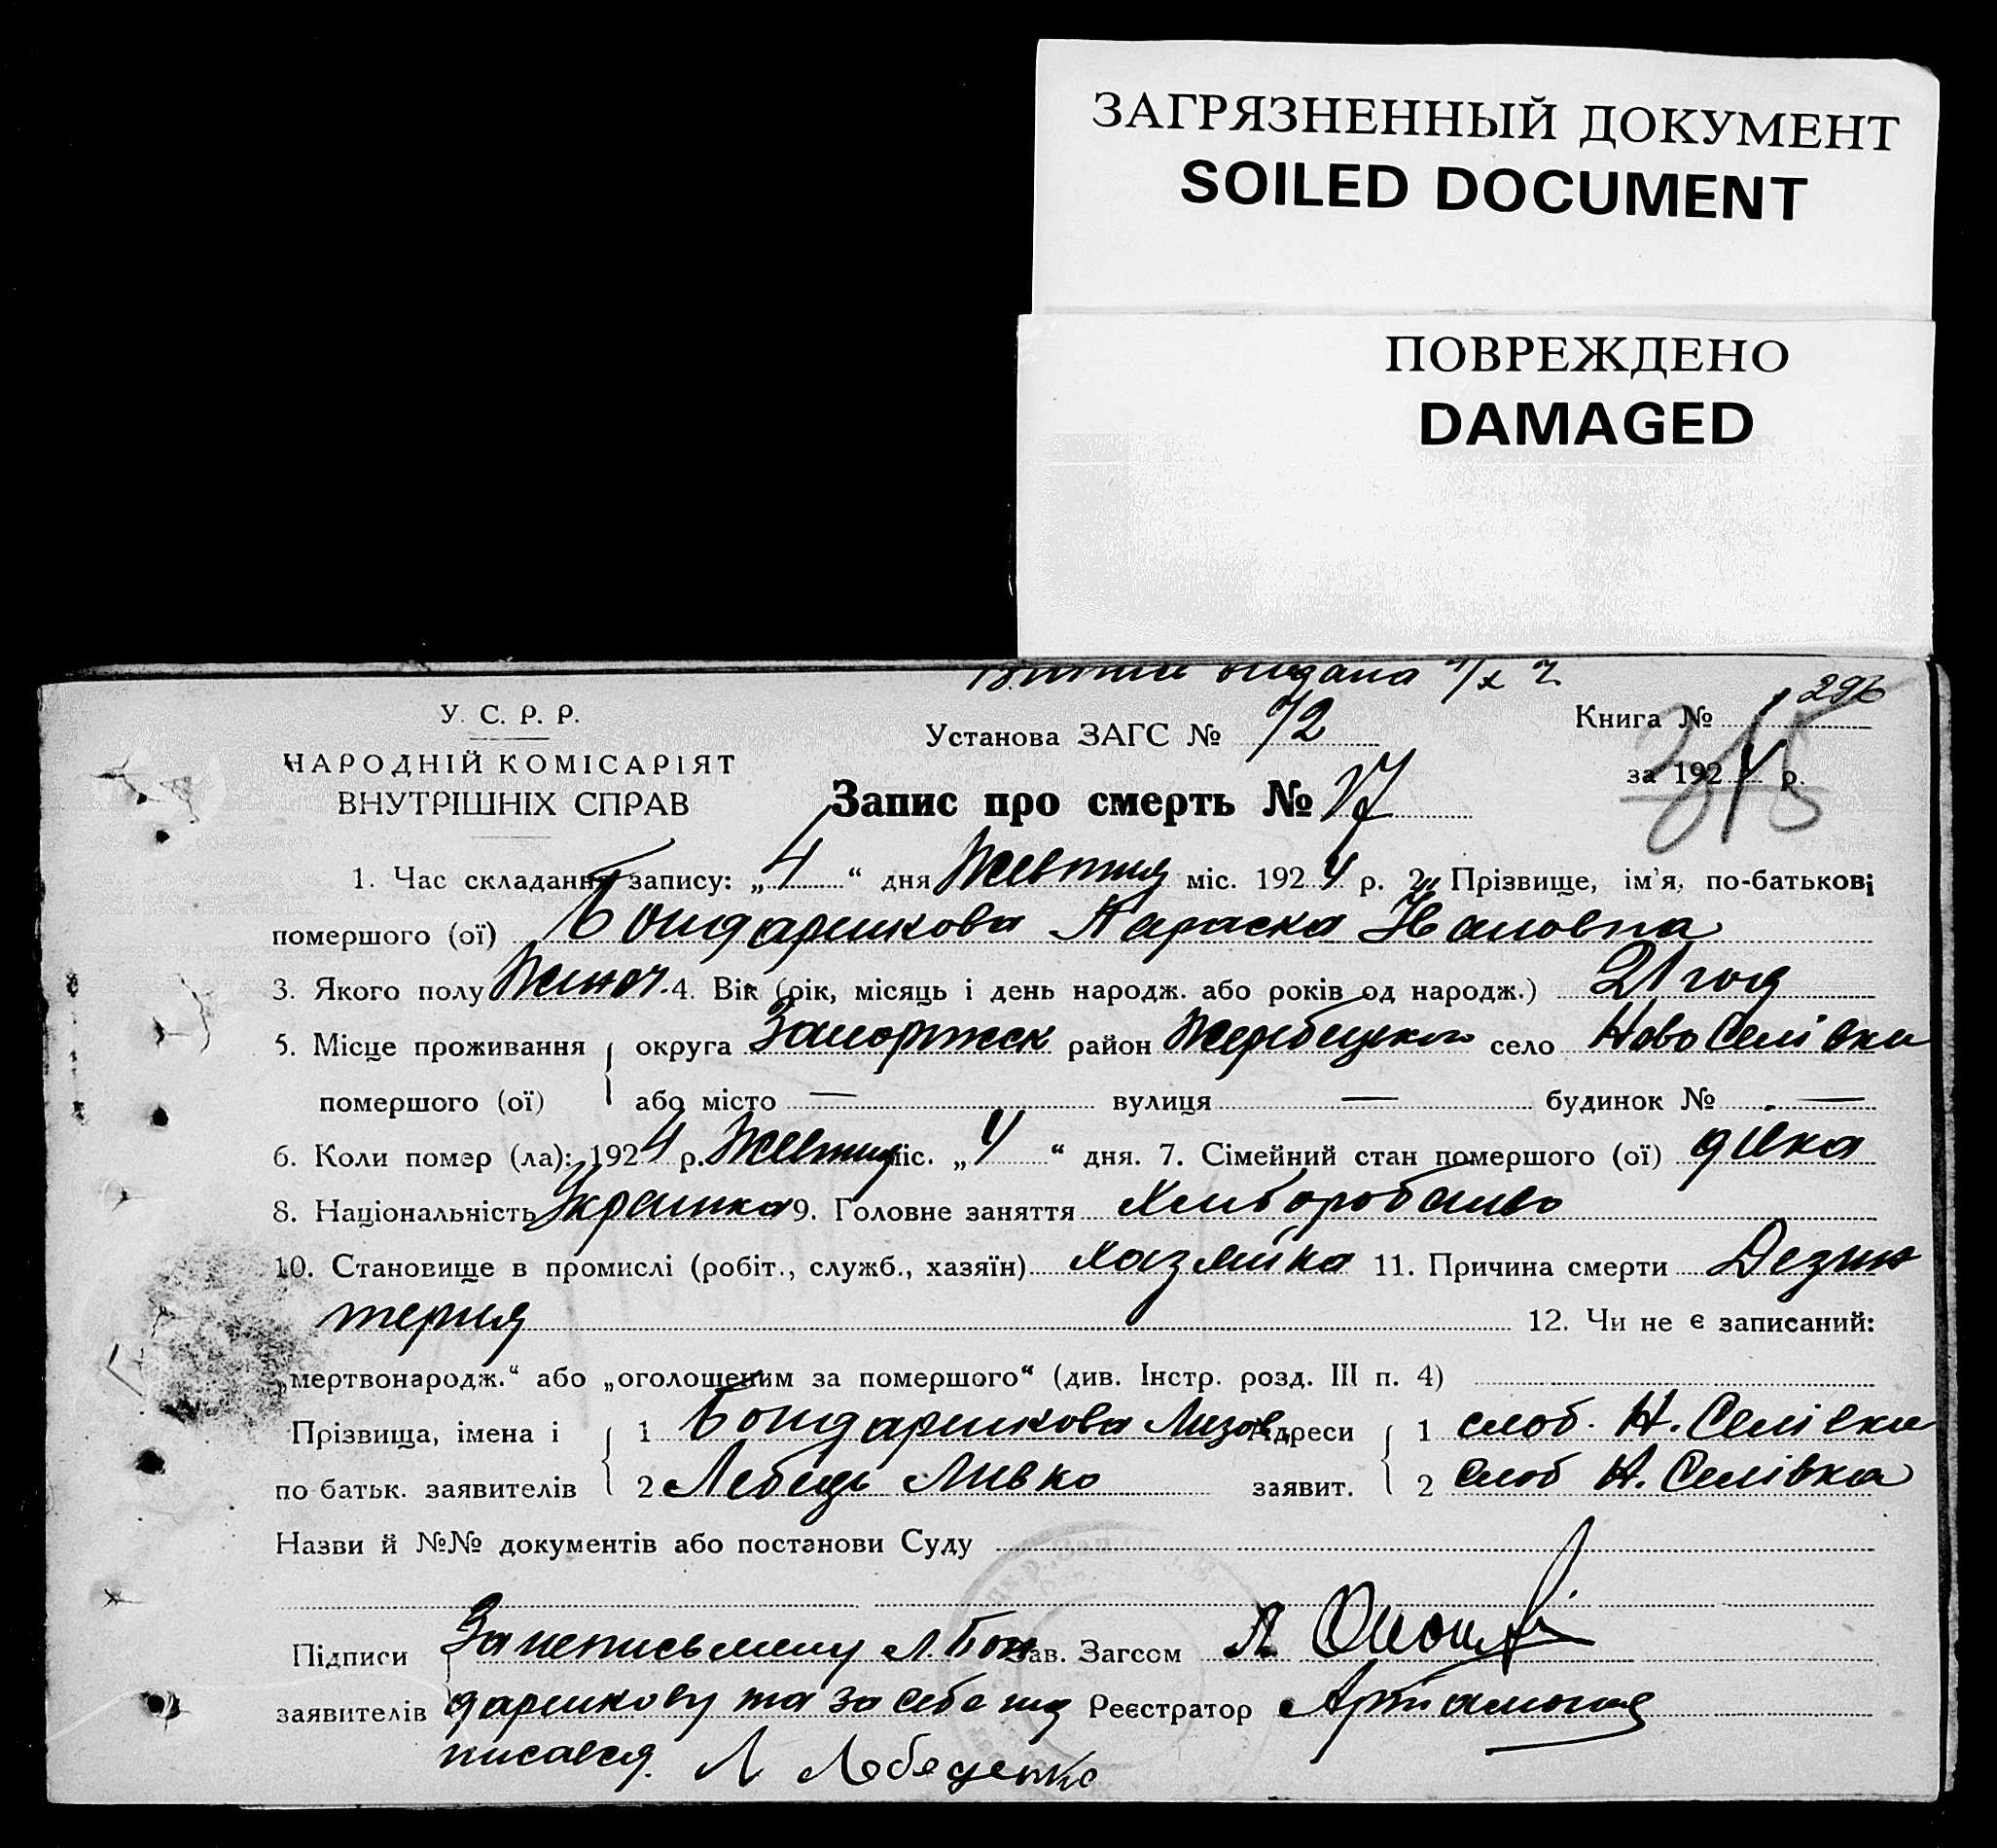 ЗАГРЯЗНЕННЫЙ ДОКУМЕНТ
SOILED DOCUMENT
ПОВРЕЖДЕНО
DAMAGED
296
У. С. Р. Р.
НАРОДНІЙ КОМІСАРІЯТ
ВНУТРІШНІХ СПРАВ
Установа ЗАГС № 72
Книга № 1
за 1924 р.
315
Запис про смерть № 17
1. Час складання запису: „4“ дня Жовтня міс. 1924 р. 2. Прізвище, ім'я, по-батькові
помершого (ої) Бондаринкова Параска Ивановна
3. Якого полу Жиноч. 4. Вік (рік, місяць і день народж. або років од народж.) 21 год
5. Місце проживання округа Запоржск район Жеребецкого село Ново Селівка
помершого (ої) або місто — вулиця — будинок № —
6. Коли помер (ла): 1924 р. Жовтня міс. „4“ дня. 7. Сімейний стан помершого (ої) дівка
8. Національність Украинка 9. Головне заняття Хлиборобство
10. Становище в промислі (робіт., служб., хазяїн) хазяйка 11. Причина смерти Дезин
терия 12. Чи не є записаний:
„мертвонародж.“ або „оголошеним за помершого“ (див. Інстр. розд. III п. 4)
Прізвища, імена і 1 Бондаринкова Адреси 1 слоб. Н. Селівка
по батьк. заявителів 2 Лебедь Ливко заявит. 2 слоб Н. Селівка
Назви й №№ документів або постанови Суду
Підписи За неписьмену Л. Бон Зав. Загсом
заявителів даринкову та за себе під Реєстратор
писався. Л Лебеденко